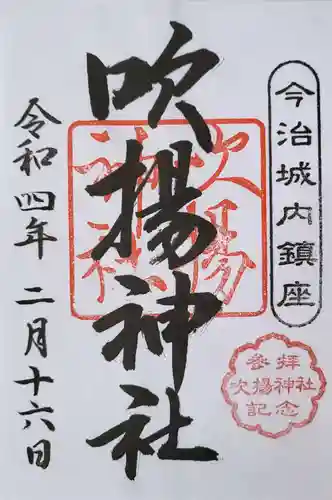 今治城内鎮座
吹揚神社
吹揚神社
参拝
吹揚神社
記念
令和四年 二月十六日